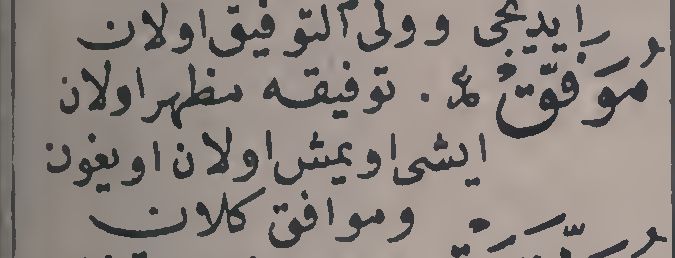 ايديجى وولى التوفيق اولان
مُوَفَّقْ عم. توفيقه مظهر اولان
ايشى اويمش اولان اويغون
وموافق كلان